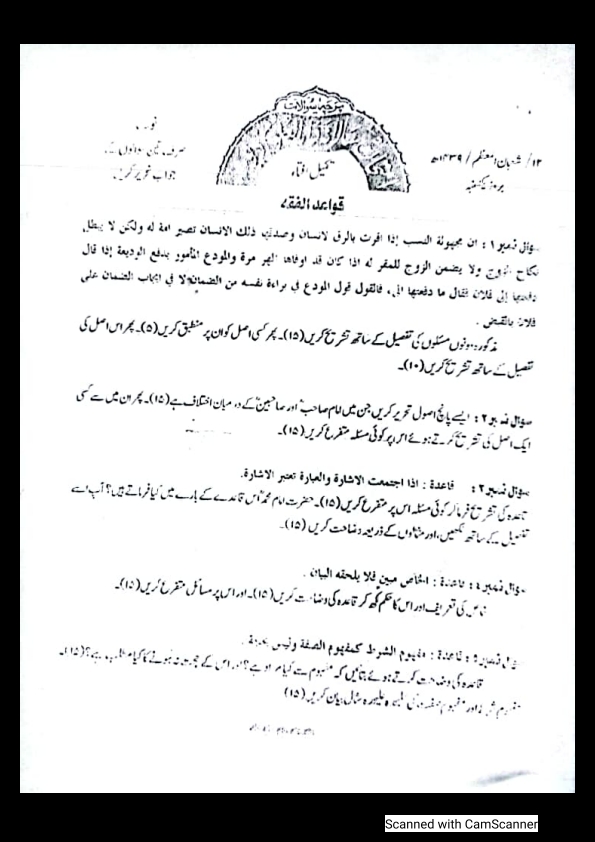 پرچہ سوالات
تکمیل افتاء
۱۲/ شعبان المعظم / ۱۴۳۹ھ
بروز یکشنبہ
نوٹ
صرف تین سوالوں کے
جواب تحریر کریں
قواعد الفقہ
سوال نمبر ۱: ان مجهولة النسب إذا اقرت بالرق لانسان وصدقها ذلك الانسان تصير امة له ولكن لا يبطل
نكاح الزوج ولا يضمن الزوج للمقر له اذا كان قد اوفاها المهر مرة والمودع المأمور بدفع الوديعة إذا قال
دفعتها إلى فلان فقال ما دفعتها الي، فالقول قول المودع في براءة نفسه من الضمان لا في ايجاب الضمان على
فلان بالقبض.
مذکورہ دونوں مسئلوں کی تفصیل کے ساتھ تشریح کریں (۱۵)۔ پھر کسی اصل کو ان پر منطبق کریں (۵)۔ پھر اس اصل کی
تفصیل کے ساتھ تشریح کریں (۱۰)۔
سوال نمبر ۲: ایسے پانچ اصول تحریر کریں جن میں امام صاحبؒ اور صاحبینؒ کے درمیان اختلاف ہے (۱۵)۔ پھر ان میں سے کسی
ایک اصل کی تشریح کرتے ہوئے اس پر کوئی مسئلہ متفرع کریں (۱۵)۔
سوال نمبر ۳: قاعدة: اذا اجتمعت الاشارة والعبارة تعتبر الاشارة.
قاعدہ کی تشریح فرما کر کوئی مسئلہ اس پر متفرع کریں (۱۵)۔ حضرت امام محمدؒ اس قاعدے کے بارے میں کیا فرماتے ہیں؟ آپ اسے
تفصیل کے ساتھ لکھیں، اور مثالوں کے ذریعہ وضاحت کریں (۱۵)۔
سوال نمبر ۴: قاعدة: الخاص مبين فلا يلحقه البيان.
خاص کی تعریف اور اس کا حکم لکھ کر قاعدہ کی وضاحت کریں (۱۵)۔ اور اس پر مسائل متفرع کریں (۱۵)۔
سوال نمبر ۵: قاعدة: مفهوم الشرط كمفهوم الصفة وليس بحجة.
قاعدہ کی وضاحت کرتے ہوئے بتائیں کہ مفہوم سے کیا مراد ہے؟ اور اس کے حجت نہ ہونے کا کیا مطلب ہے؟ (۱۵)۔
مفہوم شرط اور مفہوم صفت کی علیحدہ علیحدہ مثال بیان کریں (۱۵)
Scanned with CamScanner